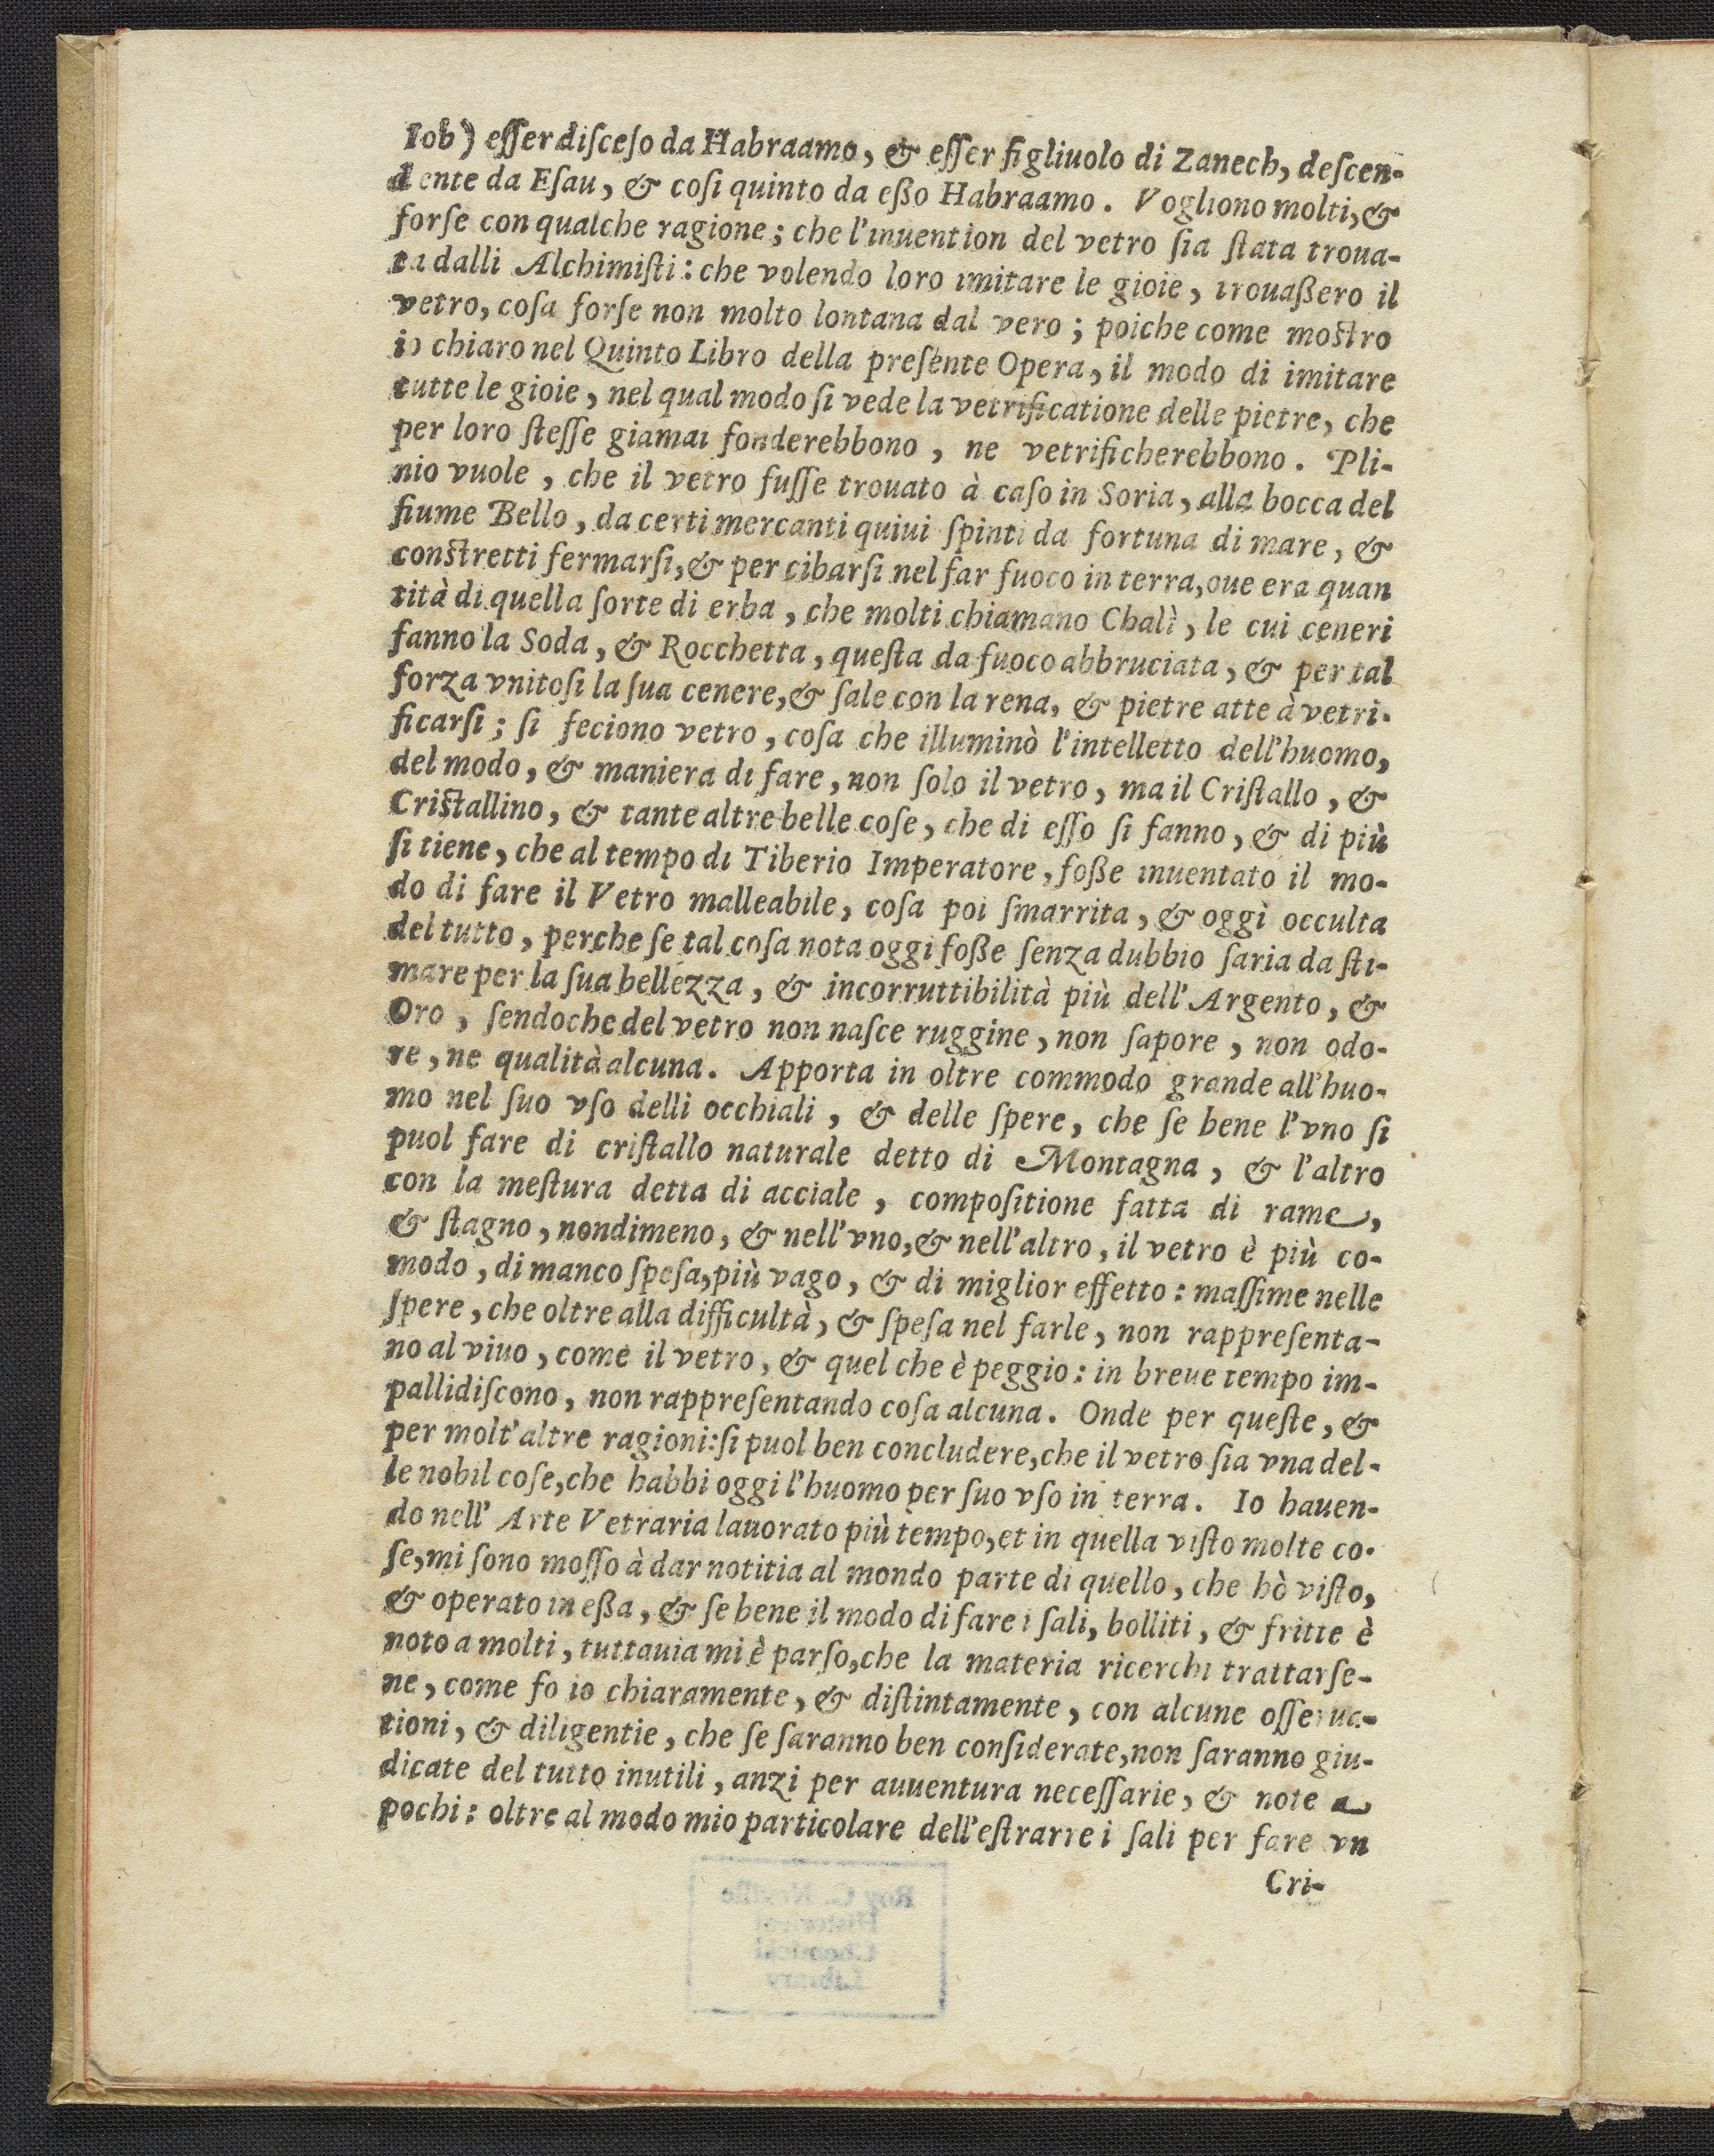 Iob) eſſer diſceſo da Habraamo, & eſſer figliuolo di Zanech, deſcen-
dente da Eſau, & coſi quinto da eßo Habraamo. Vogliono molti, &
forſe con qualche ragione; che l'inuention del vetro ſia ſtata troua-
ta dalli Alchimiſti: che volendo loro imitare le gioie, trouaßero il
vetro, coſa forſe non molto lontana dal vero; poiche come moſtro
io chiaro nel Quinto Libro della preſente Opera, il modo di imitare
tutte le gioie, nel qual modo ſi vede la vetrificatione delle pietre, che
per loro ſteſſe giamai fonderebbono, ne vetrificherebbono. Pli-
nio vuole, che il vetro fuſſe trouato à caſo in Soria, alla bocca del
fiume Bello, da certi mercanti quiui ſpinti da fortuna di mare, &
conſtretti fermarſi, & per cibarſi nel far fuoco in terra, oue era quan
tità di quella ſorte di erba, che molti chiamano Chalì, le cui ceneri
fanno la Soda, & Rocchetta, queſta da fuoco abbruciata, & per tal
forza vnitoſi la ſua cenere, & ſale con la rena, & pietre atte à vetri-
ficarſi; ſi feciono vetro, coſa che illuminò l'intelletto dell'huomo,
del modo, & maniera di fare, non ſolo il vetro, ma il Criſtallo, &
Criſtallino, & tante altre belle coſe, che di eſſo ſi fanno, & di più
ſi tiene, che al tempo di Tiberio Imperatore, foße inuentato il mo-
do di fare il Vetro malleabile, coſa poi ſmarrita, & oggi occulta
del tutto, perche ſe tal coſa nota oggi foße ſenza dubbio ſaria da ſti-
mare per la ſua bellezza, & incorruttibilità più dell'Argento, &
Oro, ſendoche del vetro non naſce ruggine, non ſapore, non odo-
re, ne qualità alcuna. Apporta in oltre commodo grande all'huo-
mo nel ſuo vſo delli occhiali, & delle ſpere, che ſe bene l'vno ſi
puol fare di criſtallo naturale detto di Montagna, & l'altro
con la meſtura detta di acciale, compoſitione fatta di rame,
& ſtagno, nondimeno, & nell'vno, & nell'altro, il vetro è più co-
modo, di manco ſpeſa, più vago, & di miglior effetto: maſſime nelle
ſpere, che oltre alla difficultà, & ſpeſa nel farle, non rappreſenta-
no al viuo, come il vetro, & quel che è peggio: in breue tempo im-
pallidiſcono, non rappreſentando coſa alcuna. Onde per queſte, &
per molt'altre ragioni: ſi puol ben concludere, che il vetro ſia vna del-
le nobil coſe, che habbi oggi l'huomo per ſuo vſo in terra. Io hauen-
do nell' Arte Vetraria lauorato più tempo, et in quella viſto molte co-
ſe, mi ſono moſſo à dar notitia al mondo parte di quello, che hò viſto,
& operato in eßa, & ſe bene il modo di fare i ſali, bolliti, & fritte è
noto a molti, tuttauia mi è parſo, che la materia ricerchi trattarſe-
ne, come fo io chiaramente, & diſtintamente, con alcune oſſerua-
tioni, & diligentie, che ſe ſaranno ben conſiderate, non ſaranno giu-
dicate del tutto inutili, anzi per auuentura neceſſarie, & note a
pochi: oltre al modo mio particolare dell'eſtrarre i ſali per fare vn
Cri-
Roy G. Neville
Historical
Chemical
Library